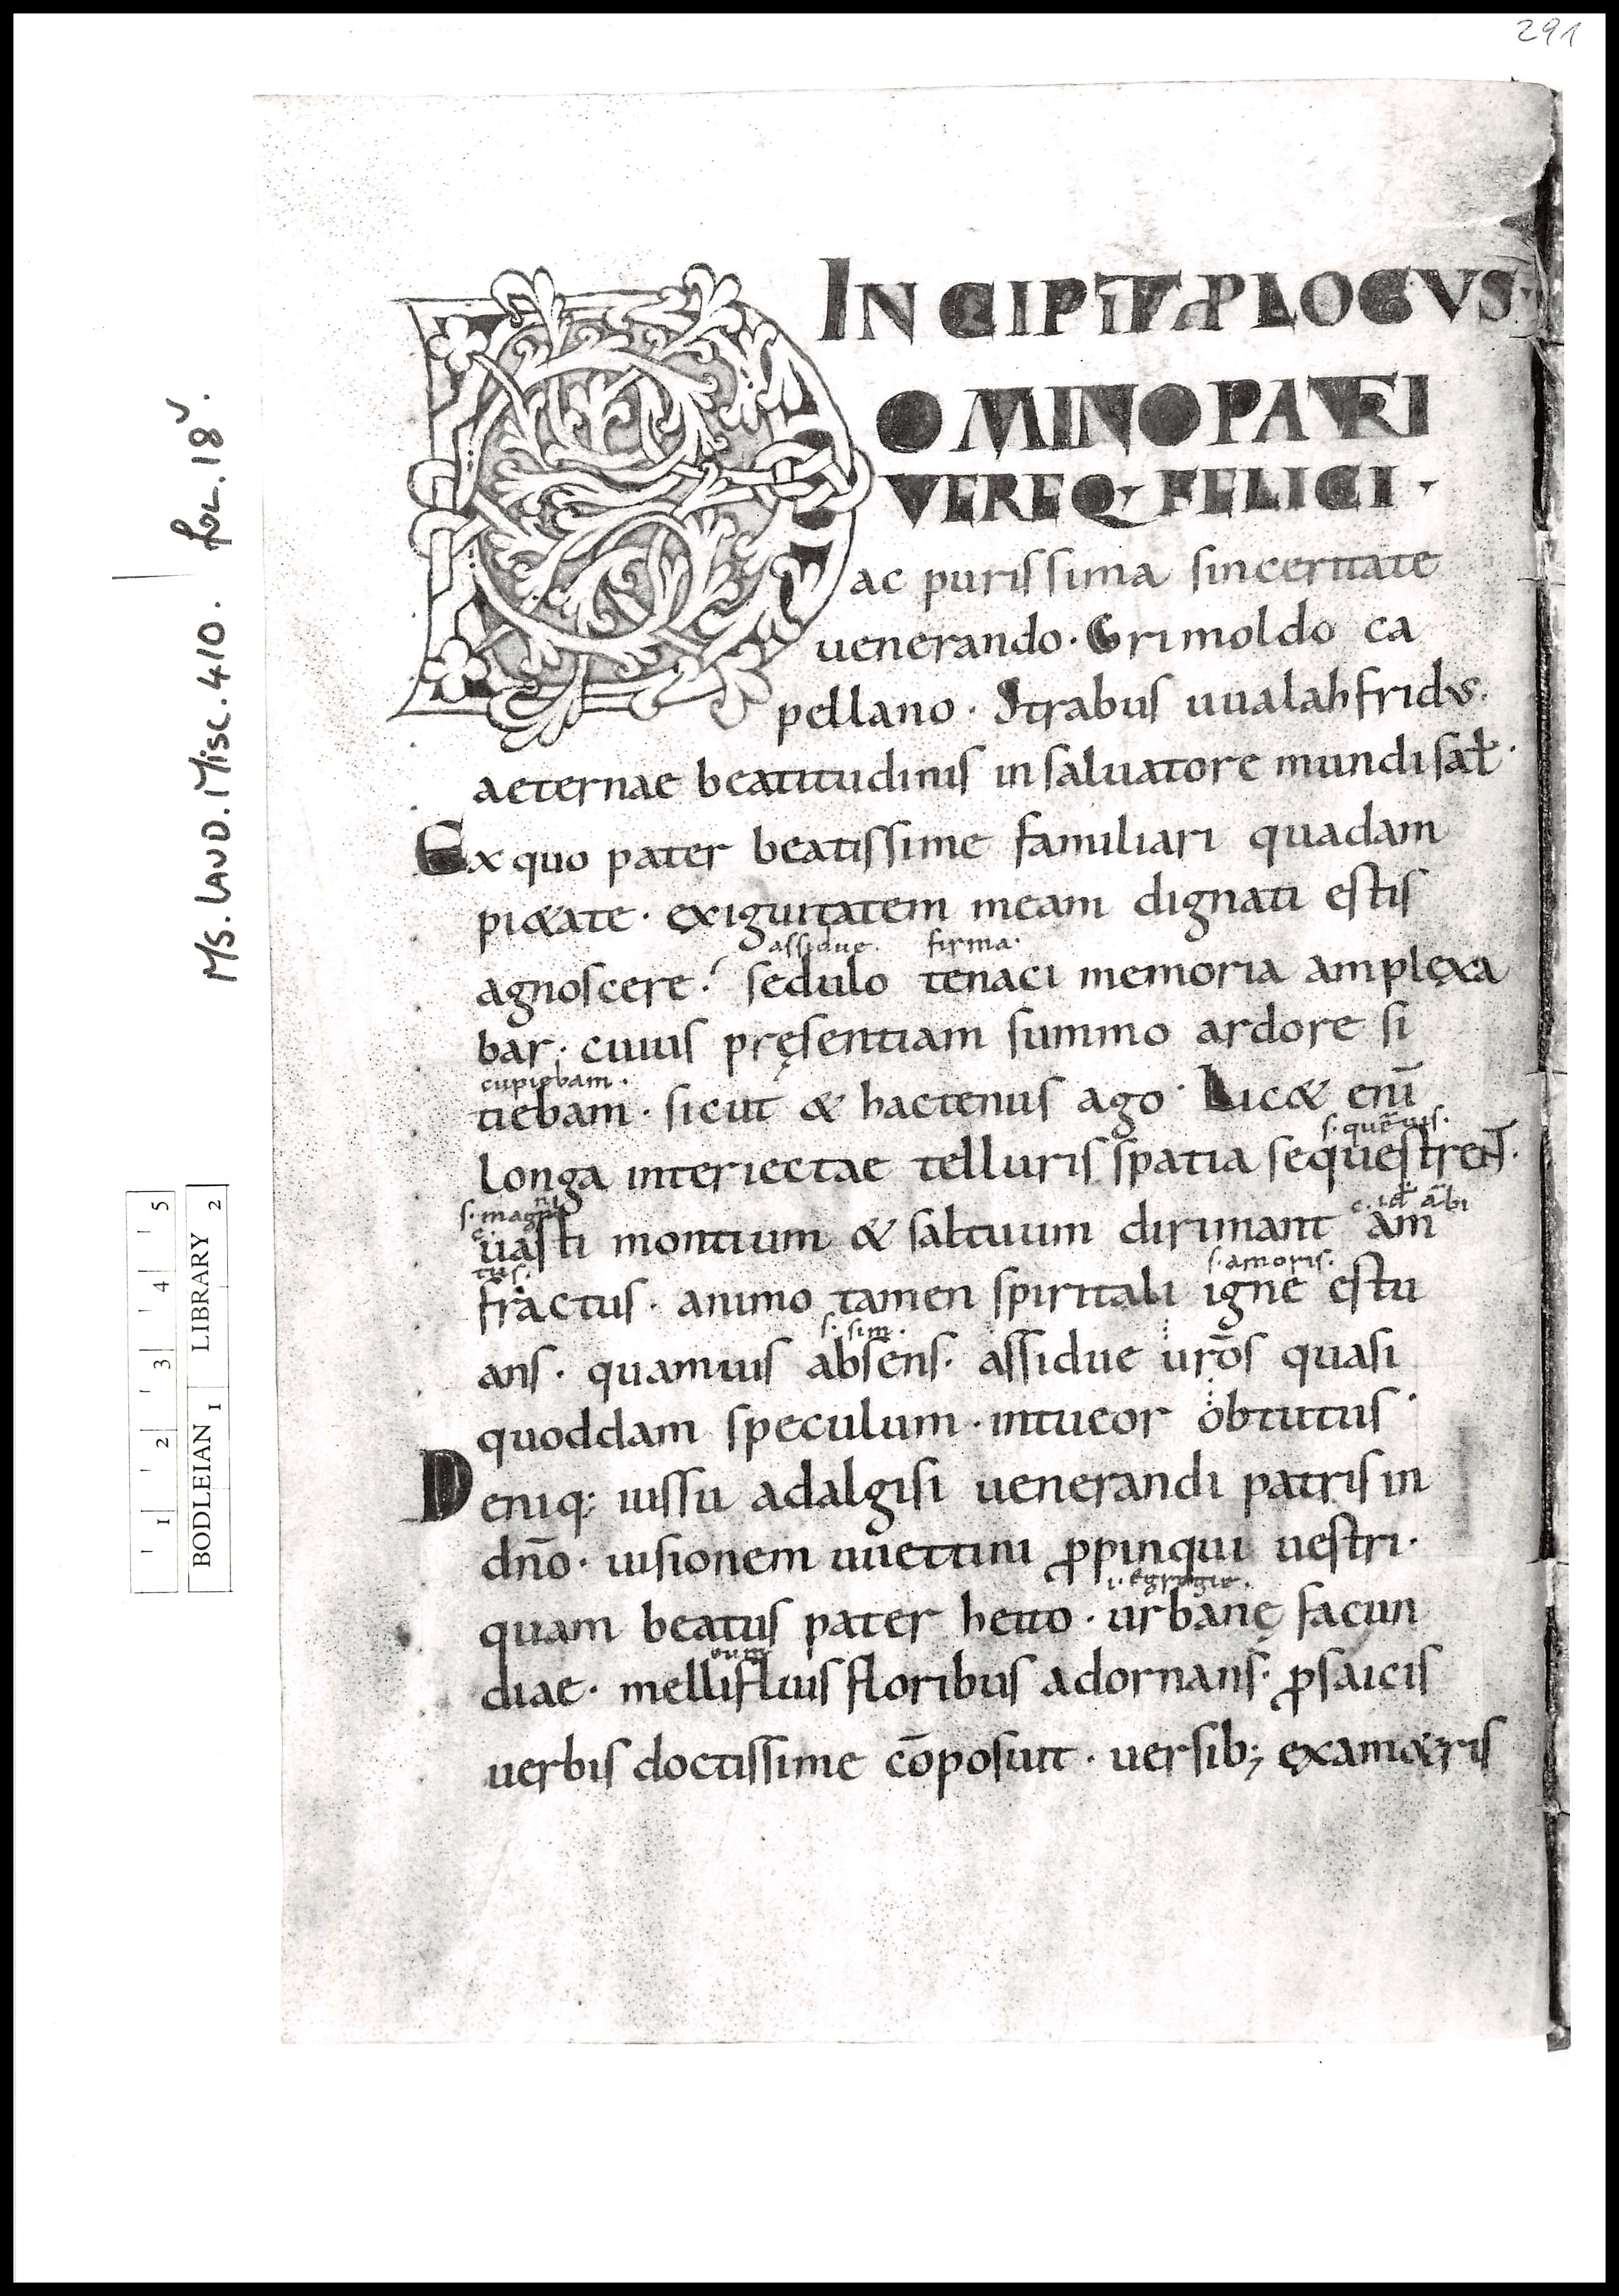 291
INCIPIT PLOGVS
DOMINO PATRI
VEREQ FELICI·
ac purissima sinceritate
uenerando· Grimoldo ca
pellano· Strabus uualahfridus·
aeternae beatitudinis in saluatore mundi sal̄·
Ex quo pater beatissime familiari quadam
pi&ate· exiguitatem meam dignati estis
assidue· firma·
agnoscere· sedulo tenaci memoria amplexa
bar· cuius pręsentiam summo ardore si
cupiebam·
tiebam· sicut & hactenus ago· Lic& enī
s· quē uis·
longa interiectae telluris spatia sequestrent·
s· magni
uasti montium & saltuum dirimant am
tus· s· amoris·
fractus· animo tamen spiritali igne estu
s· sim·
ans· quamuis absens· assidue ur̄os quasi
quoddam speculum· intueor obtutus·
Deniq; iussu adalgisi uenerandi patris in
dn̄o· uisionem uuettini ꝓpinqui uestri·
i· egregie·
quam beatus pater heito· urbanę facun
diae· mellifluis floribus adornans· ꝓsaicis
uerbis doctissime cōposuit· uersib; exam&ris
MS. LAUD. MISC. 410. FOL. 18v.
1 2 3 4 5
BODLEIAN 1 LIBRARY 2